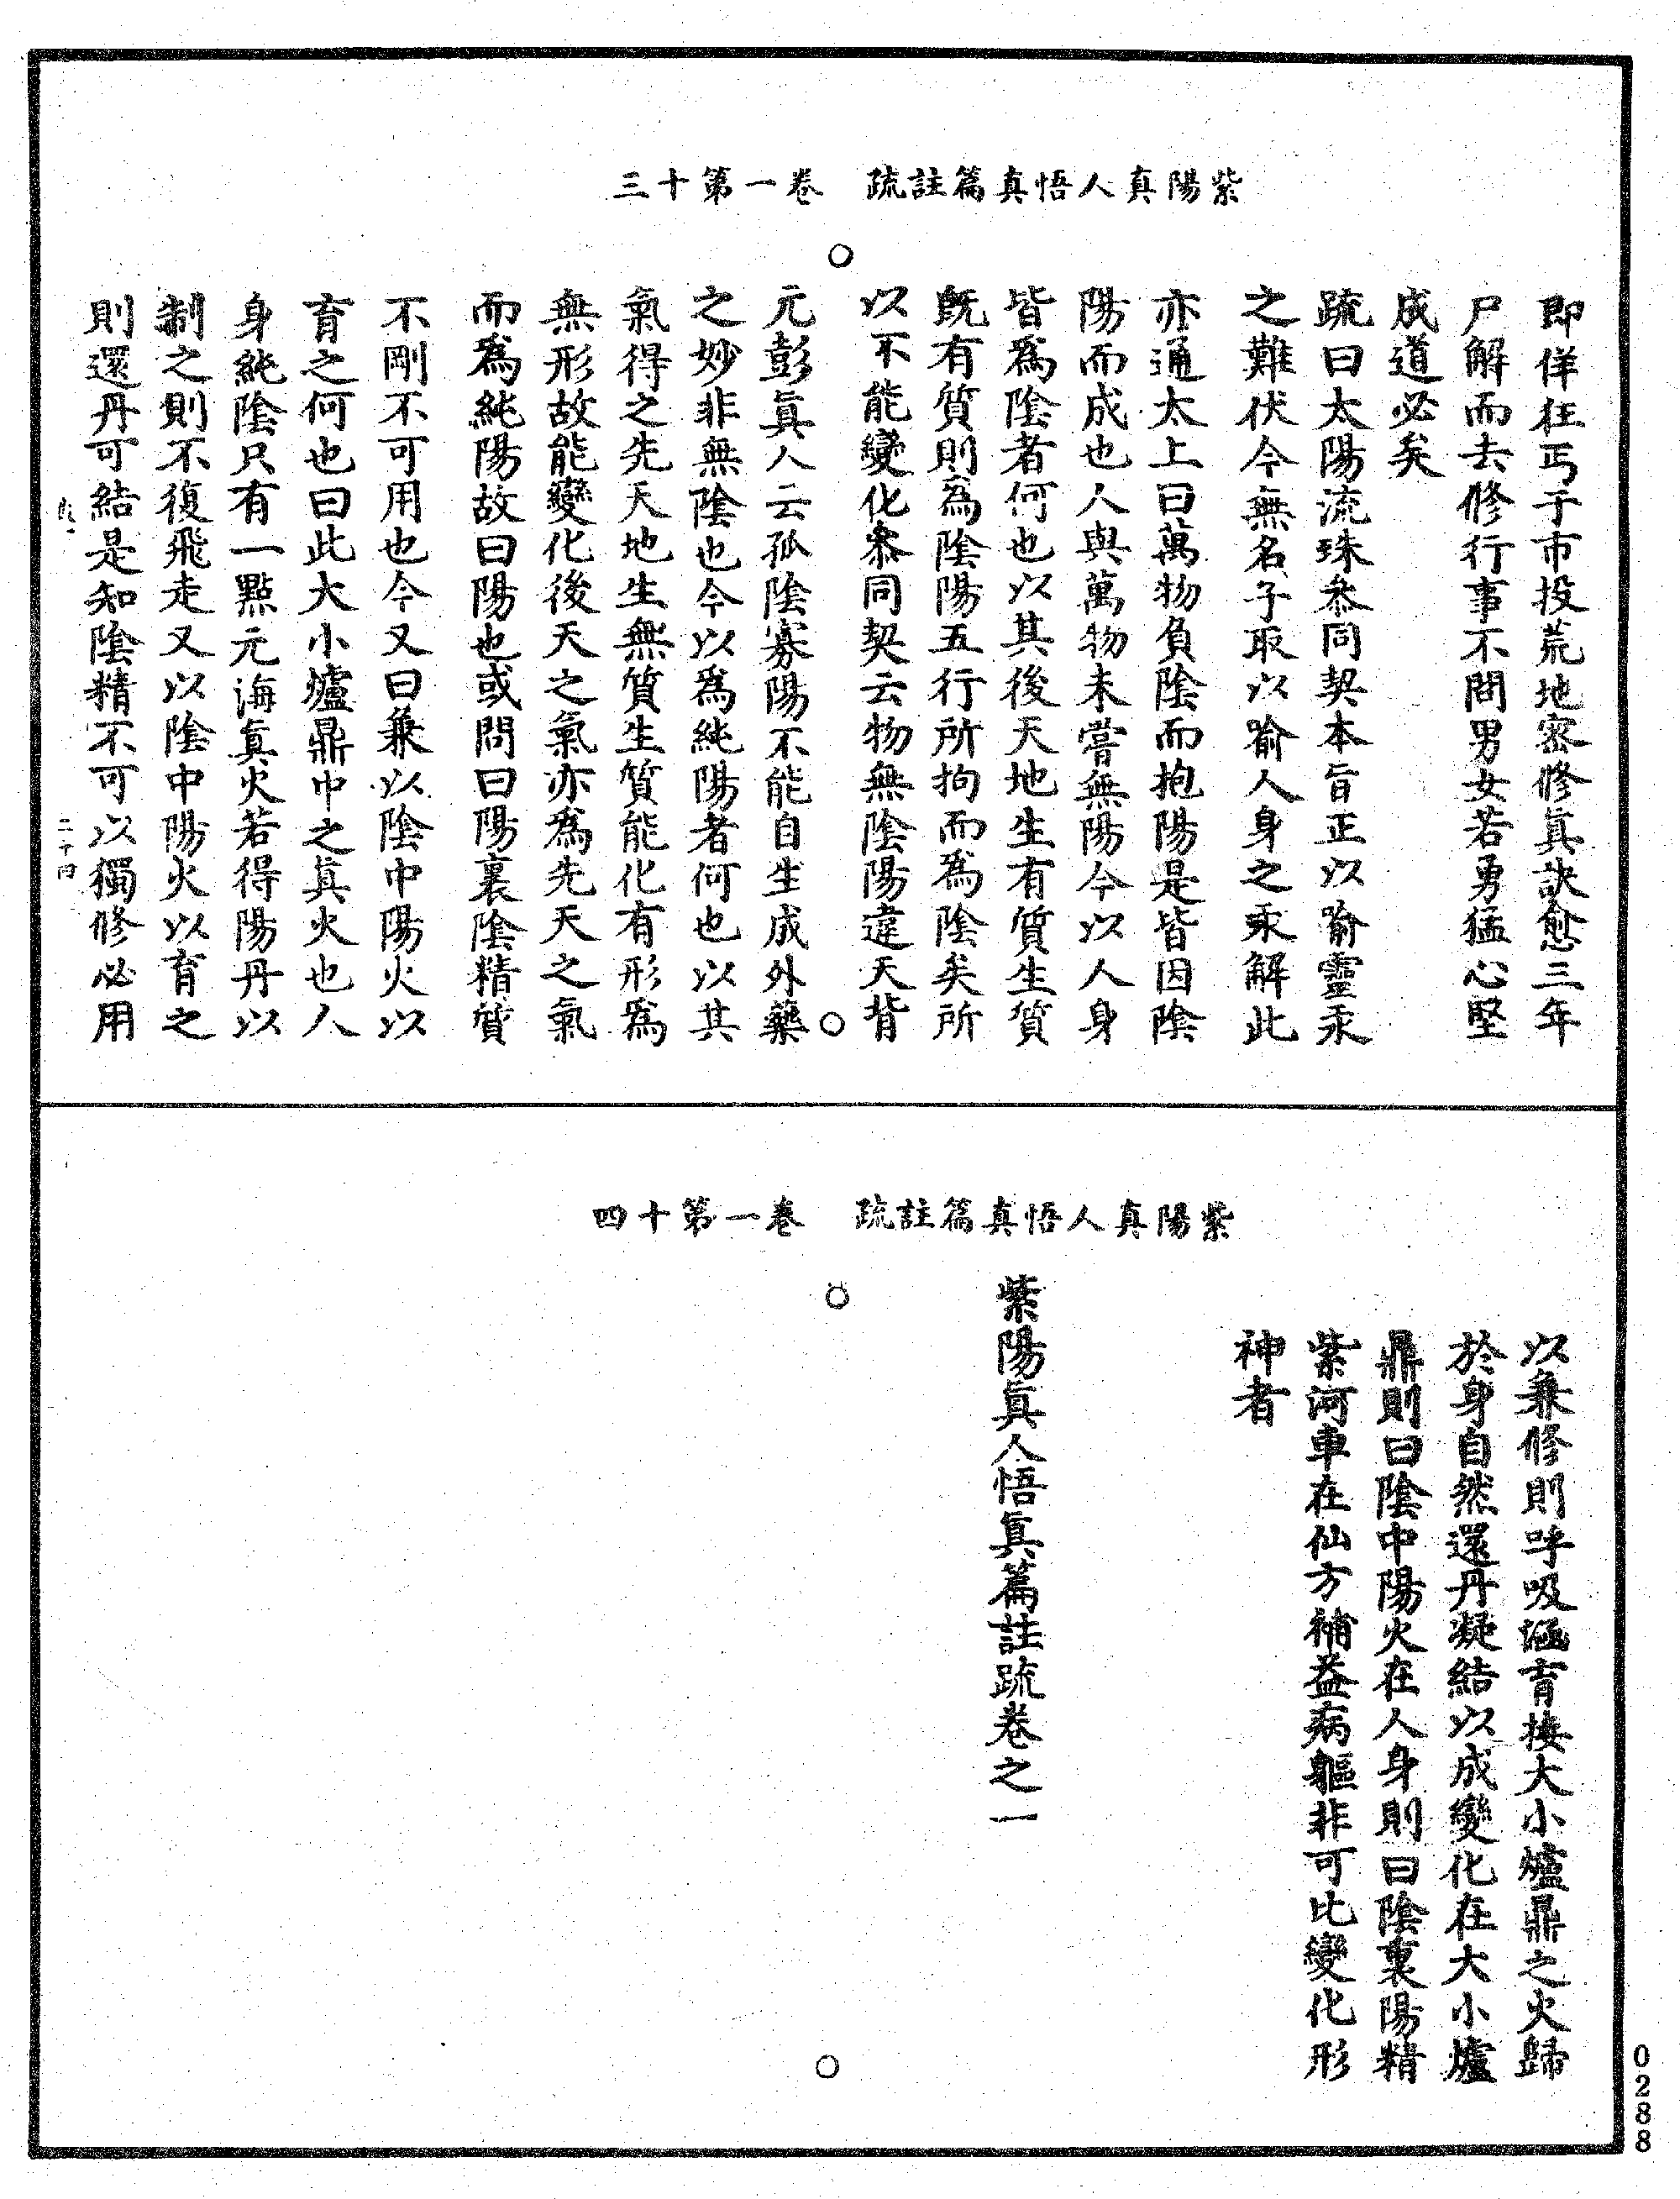 紫陽真人悟真篇註疏　卷一第十三
即佯狂丐于市投荒地密修真訣愈三年
尸解而去修行事不問男女若勇猛心堅
成道必矣
疏曰太陽流珠叅同契本旨正以喻靈汞
之難伏今無名子取以喻人身之汞解此
亦通太上曰萬物負陰而抱陽是皆因陰
陽而成也人與萬物未嘗無陽今以人身
皆爲陰者何也以其後天地生有質生質
旣有質則爲陰陽五行所拘而爲陰矣所
以不能變化叅同契云物無陰陽違天背
元彭眞人云孤陰寡陽不能自生成外藥
之妙非無陰也今以爲純陽者何也以其
氣得之先天地生無質生質能化有形爲
無形故能變化後天之氣亦爲先天之氣
而爲純陽故曰陽也或問曰陽裏陰精質
不剛不可用也今又曰兼以陰中陽火以
育之何也曰此大小爐鼎中之眞火也人
身純陰只有一點元海眞火若得陽丹以
制之則不復飛走又以陰中陽火以育之
則還丹可結是知陰精不可以獨修必用
二十四
紫陽真人悟真篇註疏　卷一第十四
以兼修則呼吸涵育接大小爐鼎之火歸
於身自然還丹凝結以成變化在大小爐
鼎則曰陰中陽火在人身則曰陰裏陽精
紫河車在仙方補益病軀非可比變化形
神者
紫陽眞人悟眞篇註疏卷之一
0288